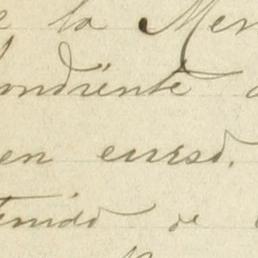 e la Mer
ondiente
en curso.
tenido de